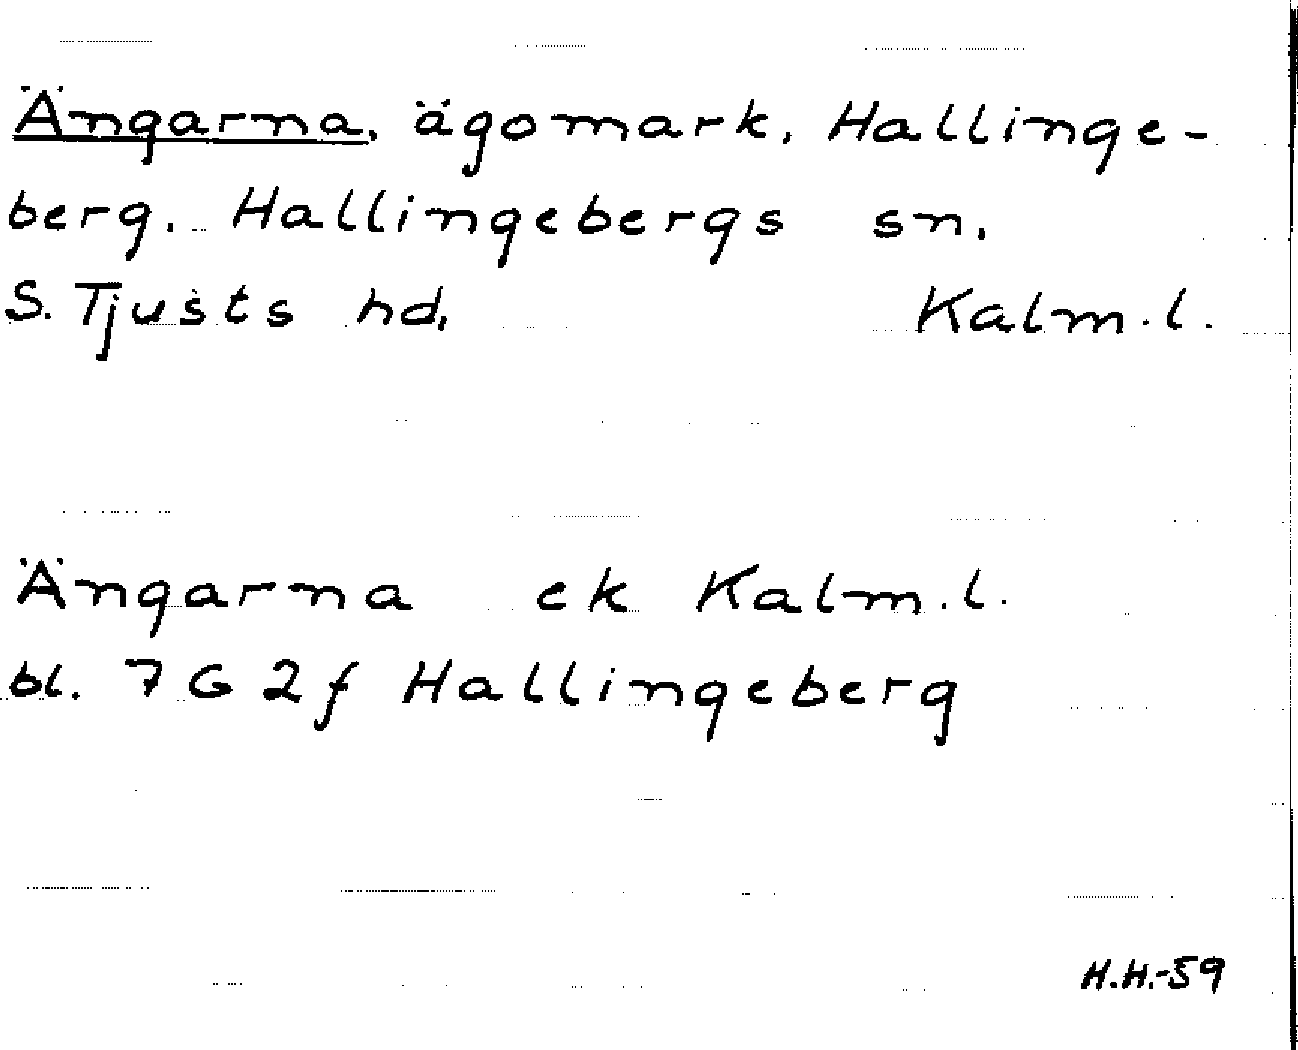 Ängarna, ägomark, Hallinge-
berg. Hallingebergs sn.
S. Tjusts hd. Kalm.l.
Ängarna ek Kalm.l.
bl. 7G 2f Hallingeberg
H.H.-59